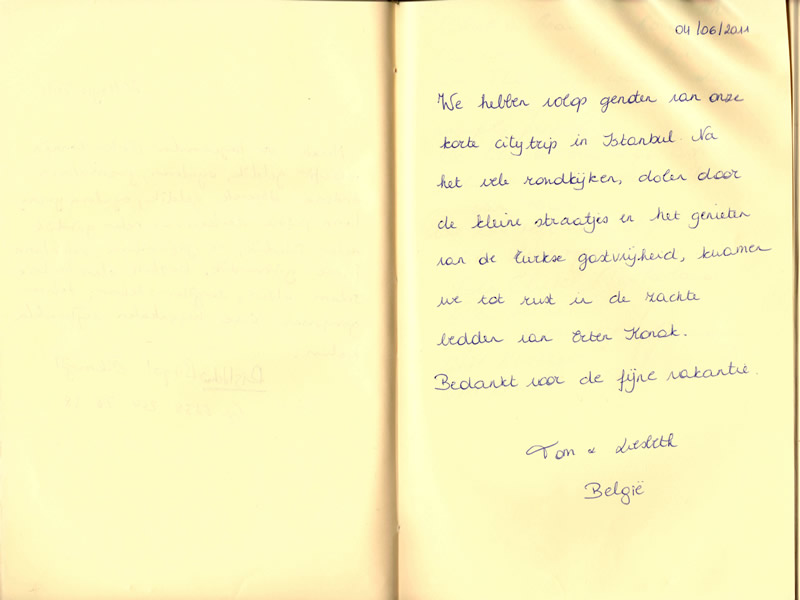 04/06/2011
We hebben volop genoten van onze
korte citytrip in Istanbul. Na
het vele rondkijken, dolen door
de kleine straatjes en het genieten
van de Turkse gastvrijheid, kwamen
we tot rust in de zachte
bedden van Erten Konak.
Bedankt voor de fijne vakantie.
Tom & Liesbeth
België